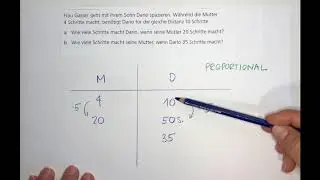 Frau Gasser geht mit ihrem Sohn Dario spazieren. Während die Mutter
4 Schritte macht, benötigt Dario für die gleiche Distanz 10 Schritte.
a Wie viele Schritte macht Dario, wenn seine Mutter 20 Schritte macht?
b Wie viele Schritte macht seine Mutter, wenn Dario 35 Schritte macht?
PROPORTIONAL
M D
4 10
·5
20 50
35